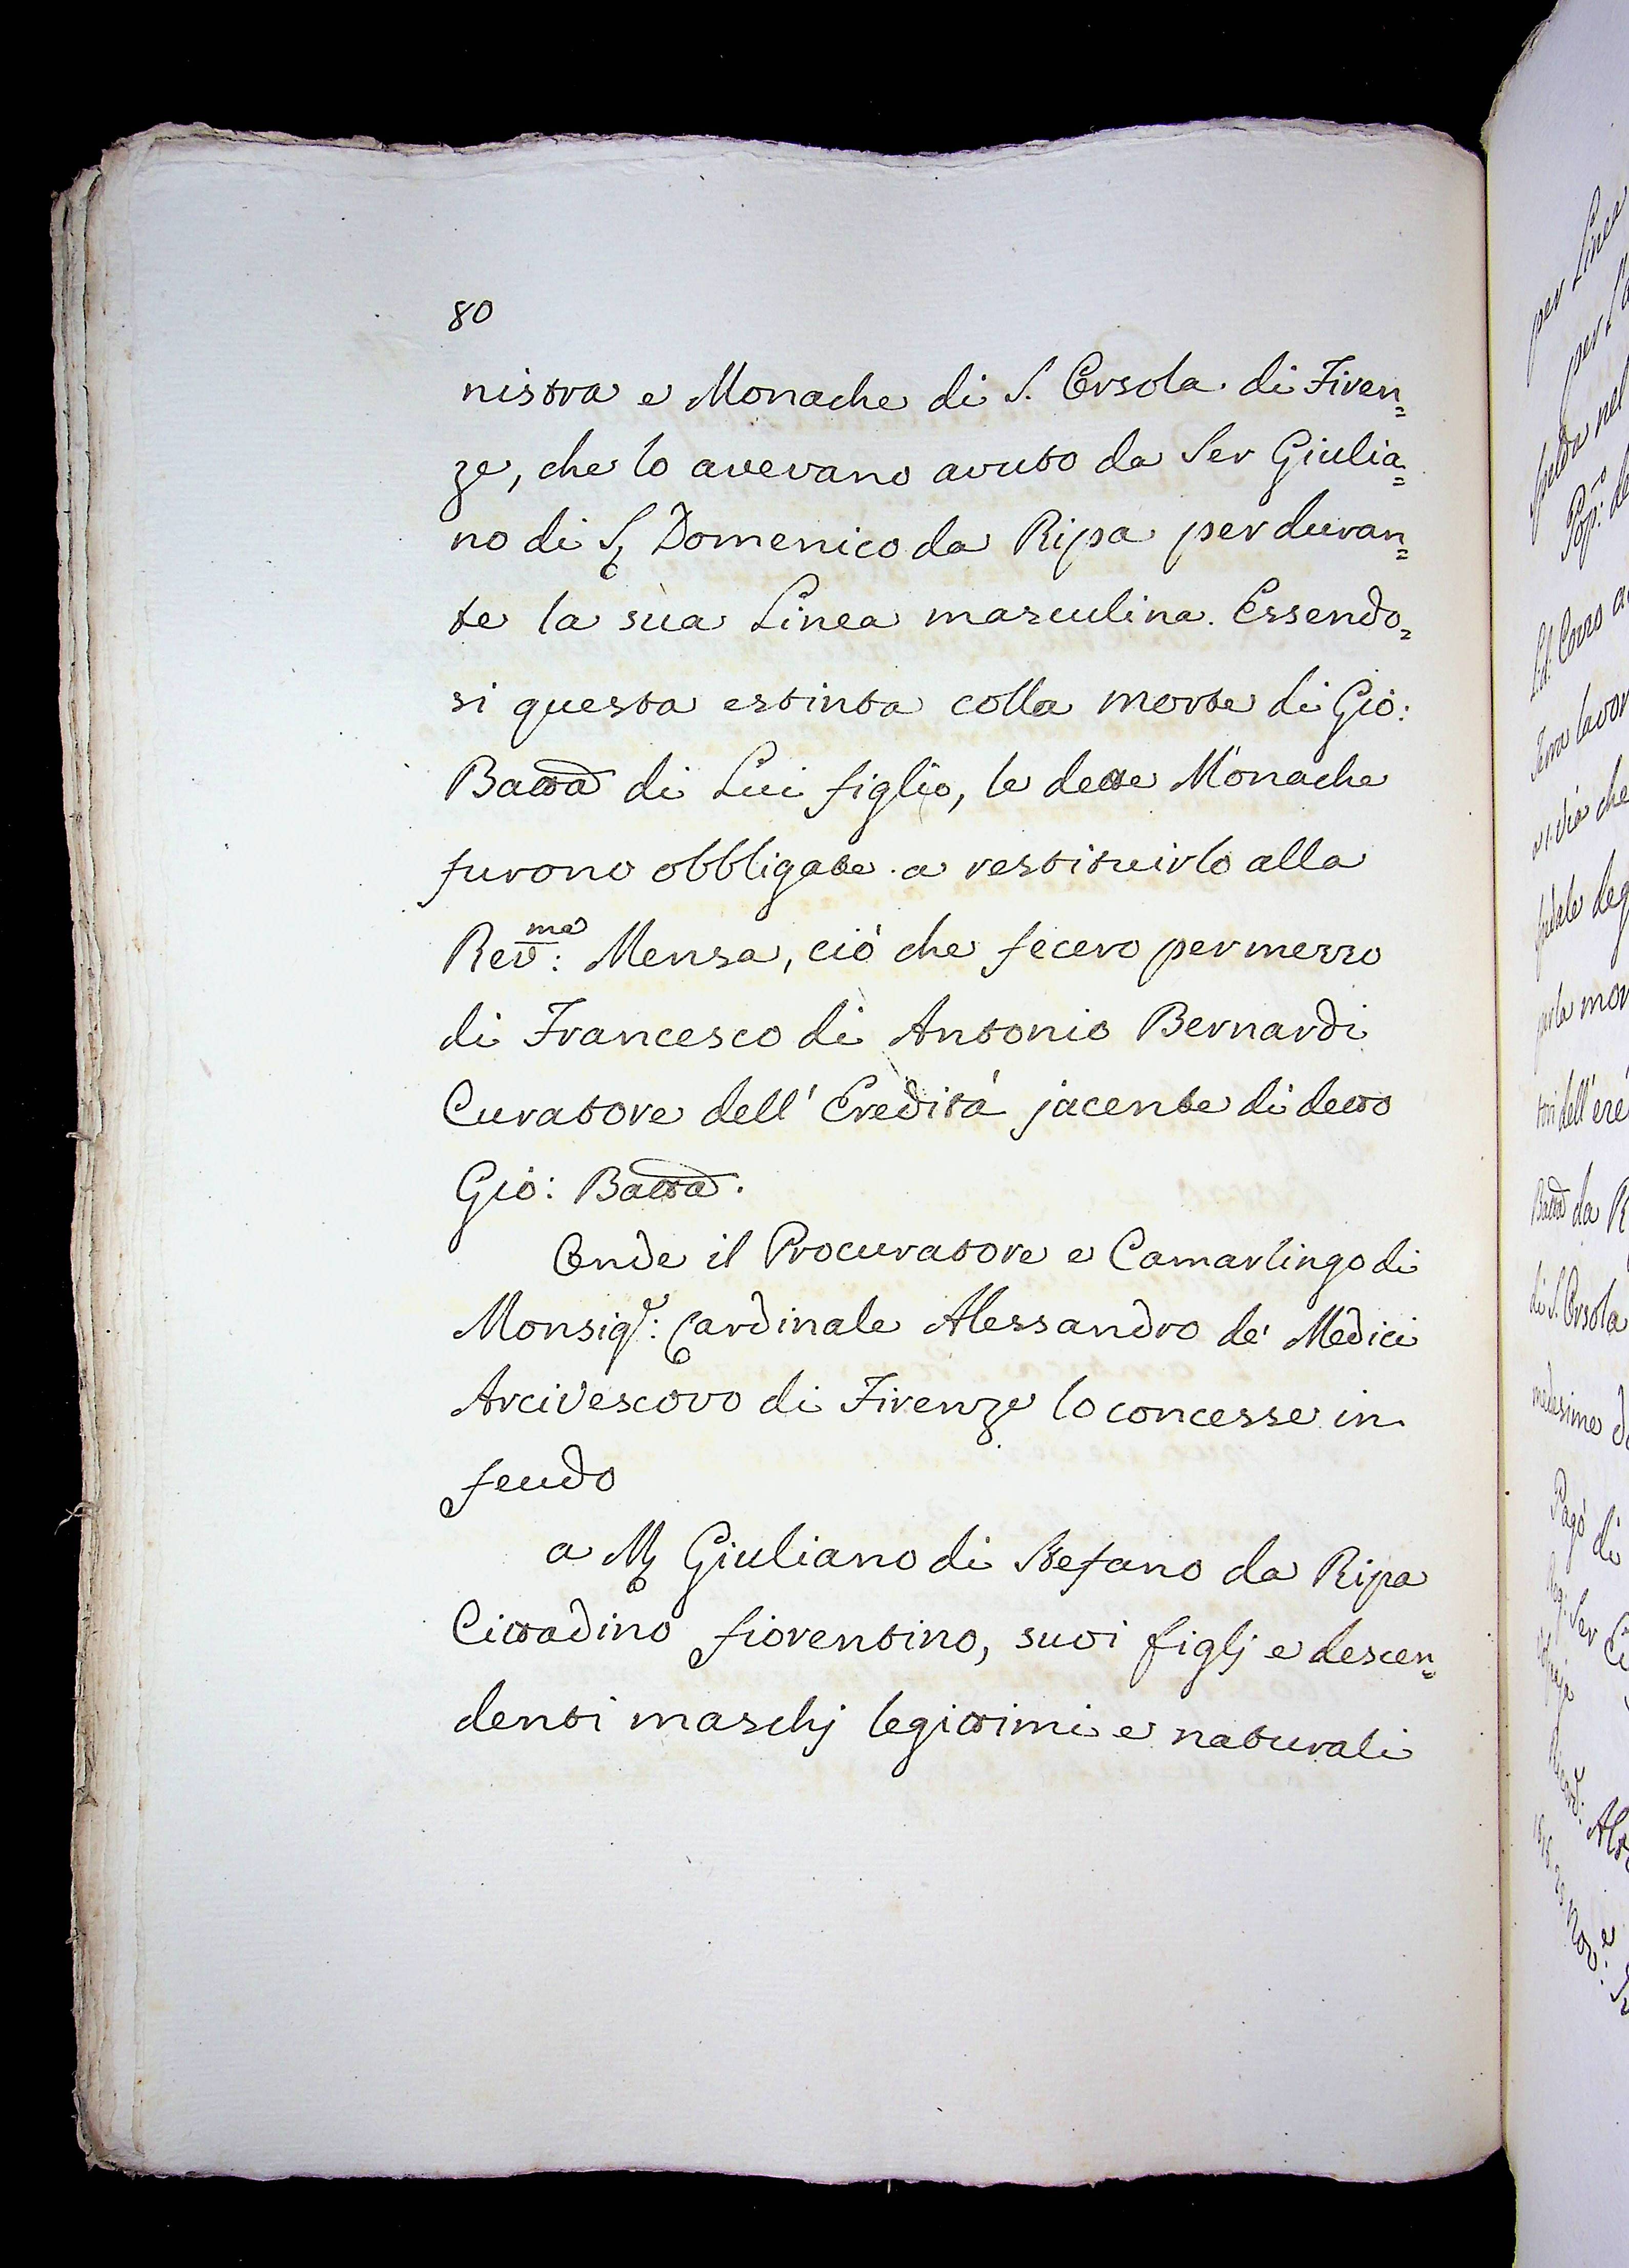 80
nistra e Monache di S. Orsola di Firen=
ze, che lo avevano avuto da Ser Giulia=
no di S. Domenico da Ripa per duran=
te la sua Linea masculina. Essendo=
si questa estinta colla morte di Gio:
Batta di Lui figlio, le dette Monache
furono obbligate a restituirlo alla
Rev.ma: Mensa, ciò che fecero per mezzo
di Francesco di Antonio Bernardi
Curatore dell' Eredità jacente di detto
Gio: Batta.
Onde il Procuratore e Camarlingo di
Monsig.r: Cardinale Alessandro de' Medici
Arcivescovo di Firenze lo concesse in
feudo
a M. Giuliano di Stefano da Ripa
Cittadino fiorentino, suoi figlj e descen=
denti maschj legittimi e naturali
per Linea
per
nel
Pop:
Ld: Corso
lavor
che
deg
mor
dell' ere
Batta da R
di S. Orsola
medesime
Pagò di
Ser